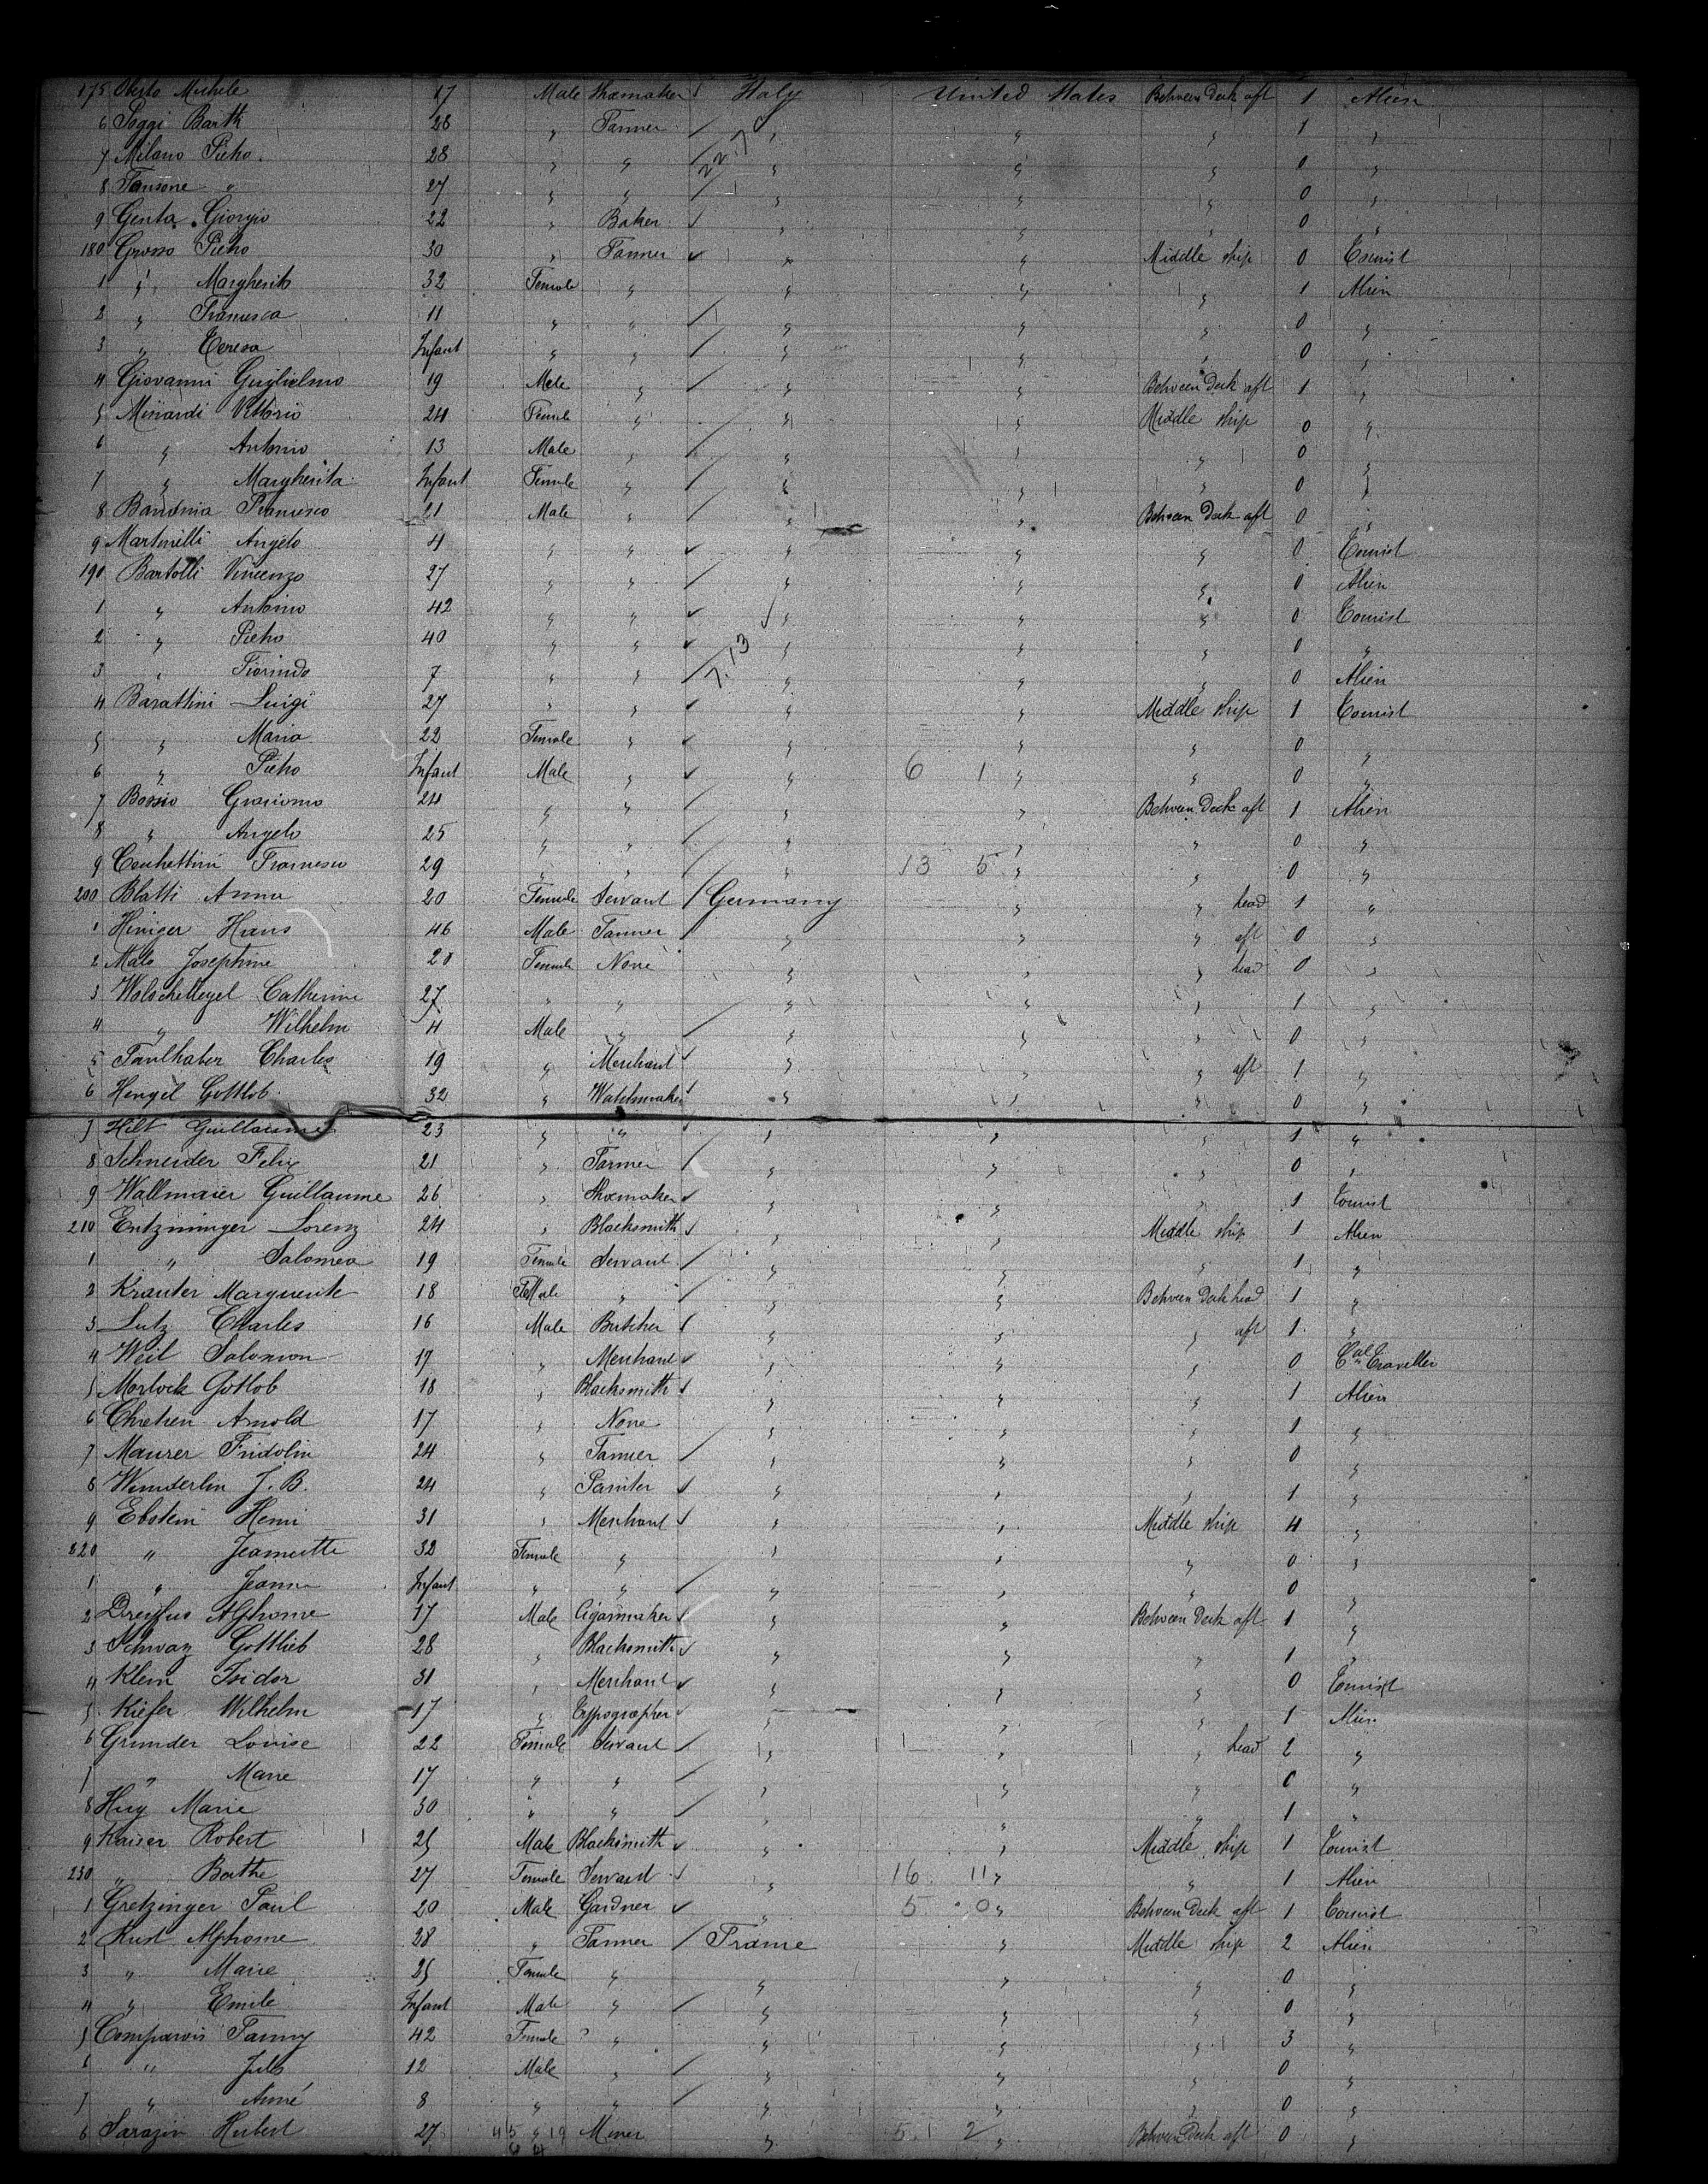 175 Oberto Michele 17 Male Shoemaker Italy United States Between Deck aft 1 Alien
6 Poggi Barth 28 " Farmer " " " 1 "
7 Milano Pietro 28 " " " " " 0 "
8 Fansone " 27 " " " " " 0 "
9 Genta Giorgio 22 " Baker " " " 0 "
180 Grosso Pietro 30 " Farmer " " Middle ship 0 Tourist
1 " Margherita 32 Female " " " " 1 Alien
2 " Francesca 11 " " " " " 0 "
3 " Teresa Infant " " " " " 0 "
4 Giovanni Guglielmo 19 Male " " " Between Deck aft 1 "
5 Minardi Vittorio 24 Female " " " Middle ship 0 "
6 " Antonio 13 Male " " " " 0 "
7 " Margherita Infant Female " " " " 0 "
8 Francesco 21 Male " " " Between Deck aft 0 "
9 Martinelli Angelo 4 " " " " " 0 Tourist
190 Bartolli Vincenzo 27 " " " " " 0 Alien
1 " Antonio 42 " " " " " 0 Tourist
2 " Pietro 40 " " " " " 0 "
3 " Fiorindo 7 " " 7.13 " " " 0 Alien
4 Barattini Luigi 27 " " " " Middle ship 1 Tourist
5 " Maria 22 Female " " " " 0 "
6 " Pietro Infant Male " " 6 1 " " 0 "
7 Bossio Giacomo 24 " " " " Between Deck aft 1 Alien
8 " Angelo 25 " " " " " 0 "
9 Francesco 29 " " " 13 5 " " 0 "
200 Blatti Anna 20 Female Servant Germany " " head 1 "
1 Hiniger Hans 46 Male Farmer " " " aft 0 "
2 Malo Josephine 20 Female None " " " head 0 "
3 Catherine 27 " " " " " 1 "
4 " Wilhelm 4 Male " " " " 0 "
5 Faulhaber Charles 19 " Merchant " " " aft 1 "
6 Hengel Gottlob 32 " Watchmaker " " " 0 "
7 Hilt Guillaume 23 " " " " " 1 "
8 Schneider Felix 21 " Farmer " " " 0 "
9 Wallmaier Guillaume 26 " Shoemaker " " " 1 Tourist
210 Entzminger Lorenz 24 " Blacksmith " " Middle ship 1 Alien
1 " Salomea 19 Female Servant " " " 1 "
2 Krauter Marguerite 18 FeMale " " " Between Deck head 1 "
3 Lutz Charles 16 Male Butcher " " " aft 1 "
4 Weil Salomon 17 " Merchant " " " 0 Traveller
5 Morlock Gotlob 18 " Blacksmith " " " 1 Alien
6 Chretien Arnold 17 " None " " " 1 "
7 Maurer Fridolin 24 " Farmer " " " 0 "
8 Wunderlin J. B. 24 " Painter " " " 1 "
9 Ebstein Henri 31 " Merchant " " Middle ship 4 "
220 " Jeannette 32 Female " " " " 0 "
1 " Jeanne Infant " " " " " 0 "
2 Dreyfus Alphonse 17 Male Cigarmaker " " Between Deck aft 1 "
3 Schwaz Gottlieb 28 " Blacksmith " " " 1 "
4 Klein Isidor 31 " Merchant " " " 0 Tourist
5 Kiefer Wilhelm 17 " Typographer " " " 1 Alien
6 Grunder Louise 22 Female Servant " " " head 2 "
7 " Marie 17 " " " " " 0 "
8 Huy Marie 30 " " " " " 1 "
9 Kaiser Robert 25 Male Blacksmith " " Middle ship 1 Tourist
230 " Berthe 27 Female Servant " 16 11 " " 1 Alien
1 Gretzinger Paul 20 Male Gardner " 5 0 " Between Deck aft 1 Tourist
2 Kust Alphonse 28 " Farmer France " Middle ship 2 Alien
3 " Marie 25 Female " " " " 0 "
4 " Emile Infant Male " " " " 0 "
5 Comparois Fanny 42 Female " " " " 3 "
6 " Jules 12 Male " " " " 0 "
7 " Aimé 8 " " " " " 0 "
8 Sarazin Hubert 27 " Miner " 51 2 " Between Deck aft 0 "